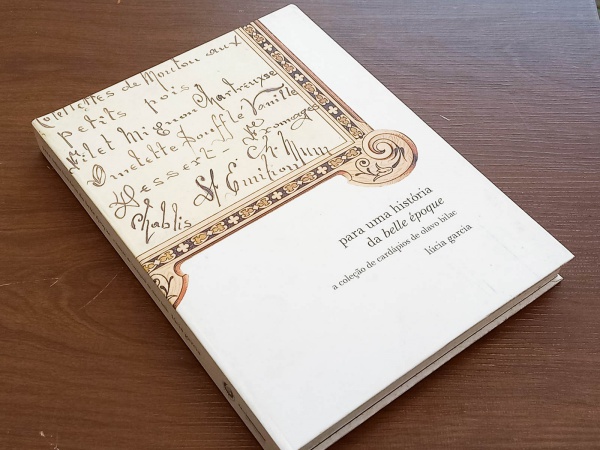 Côtelettes de Mouton aux
petits pois
Filet Mignon Chartreuse
Omelette Souffle Vanille
Dessert - Fromages
Chablis St Emilion Ch. Mum
para uma história
da belle époque
a coleção de cardápios de olavo bilac
lúcia garcia